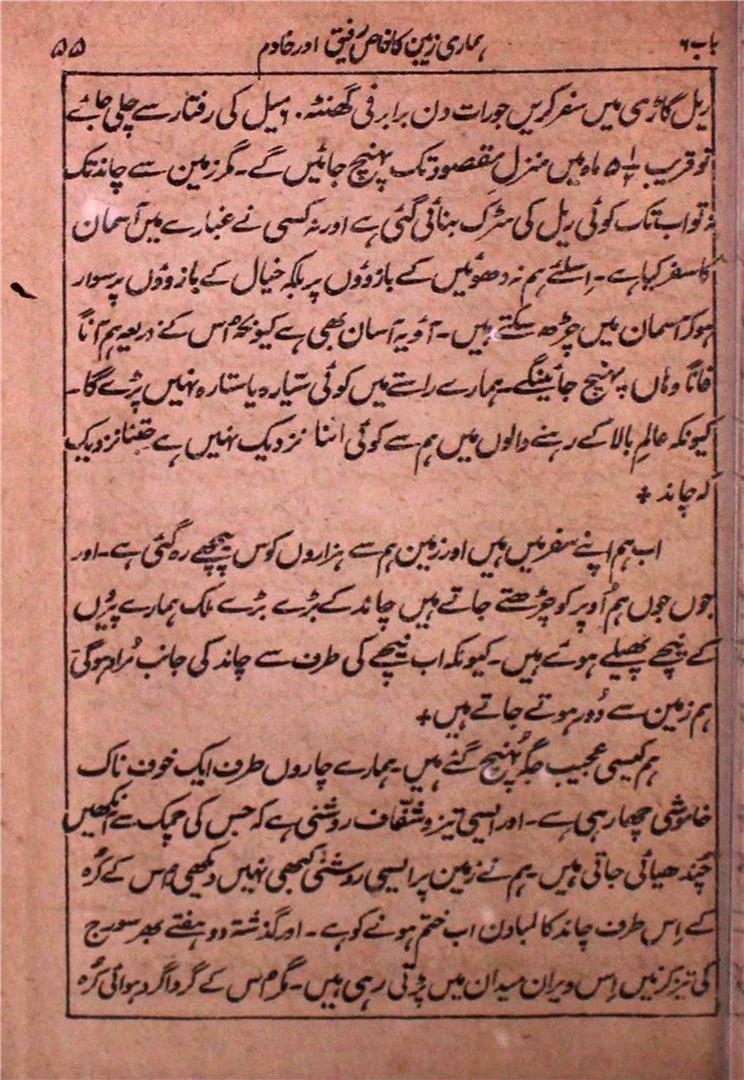 باب ۶ ہماری زمین کا خاص رفیق اور خادم ۵۵
ریل گاڑی میں سفر کریں جو رات دن برابر فی گھنٹہ ۶۰ میل کی رفتار سے چلی جائے
تو قریب ۵½ ماہ میں منزل مقصود تک پہنچ جائیں گے۔ مگر زمین سے چاند تک
نہ تو اب تک کوئی ریل کی سڑک بنائی گئی ہے اور نہ کسی نے غبارے میں آسمان
کا سفر کیا ہے۔ اِسلئے ہم نہ دھوئیں کے بازوؤں پر بلکہ خیال کے بازوؤں پر سوار
ہو کر آسمان میں چڑھ سکتے ہیں۔ آؤ یہ آسان بھی ہے کیونکہ اُس کے ذریعہ ہم آناً
فاناً وہاں پہنچ جائینگے۔ ہمارے راستے میں کوئی سیّارہ یا ستارہ نہیں پڑے گا۔
کیونکہ عالمِ بالا کے رہنے والوں میں ہم سے کوئی اتنا نزدیک نہیں ہے جتنا نزدیک
کہ چاند +
اب ہم اپنے سفر میں ہیں اور زمین ہم سے ہزاروں کوس پیچھے رہ گئی ہے۔ اور
جوں جوں ہم اُوپر کو چڑھتے جاتے ہیں چاند کے بڑے بڑے ملک ہمارے پیروں
کے نیچے پھیلے ہوئے ہیں۔ کیونکہ اب نیچے کی طرف سے چاند کی جانب مُراد ہوگی۔
ہم زمین سے دُور ہوتے جاتے ہیں +
ہم کیسی عجیب جگہ پُہنچ گئے ہیں۔ ہمارے چاروں طرف ایک خوف ناک
خاموشی چھا رہی ہے۔ اور ایسی تیز و شفّاف روشنی ہے کہ جس کی چمک سے آنکھیں
چُندھیائی جاتی ہیں۔ ہم نے زمین پر ایسی روشنی کبھی نہیں دیکھی۔ اُس کے کُرہ
کے اِس طرف چاند کا لمبا دن اب ختم ہونے کو ہے۔ اور گذشتہ دو ہفتے بھر سورج
کی تیز کرنیں اِس ویران میدان میں پڑتی رہی ہیں۔ مگر اُس کے گرداگرد ہوائی کُرہ